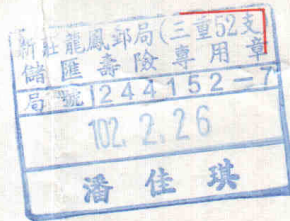 新莊龍鳳郵局(三重52支
儲匯壽險專用章
局號244152-7
102.2.26
潘佳琪